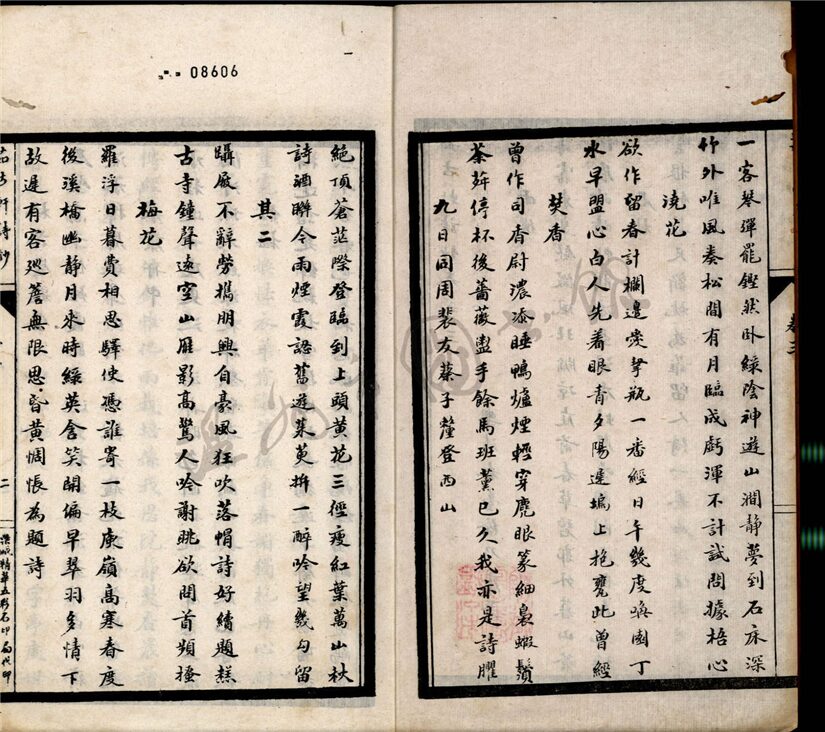 08606
一客琴彈罷鏗然臥綠陰神遊山澗靜夢到石床深
竹外唯風奏松間有月臨成虧渾不計試問據梧心
澆花
欲作留春計欄邊愛挈瓶一番經日午幾度喚園丁
水早盟心白人先着眼青夕陽遲塢上抱甕此曾經
焚香
曾作司香尉濃添睡鴨爐煙輕穿麂眼篆細裊蝦鬚
荼荈停杯後薔薇盥手餘馬班薰已久我亦是詩臞
九日同周裴友蔡子釐登西山
絕頂蒼茫際登臨到上頭黃花三徑瘦紅葉萬山秋
詩酒聯今雨煙霞認舊遊茱萸拚一醉吟望幾勾留
其二
躡屐不辭勞攜朋興自豪風狂吹落帽詩好續題糕
古寺鐘聲遠空山雁影高驚人吟謝眺欲問首頻搔
梅花
羅浮日暮費相思驛使憑誰寄一枝庾嶺高寒春度
後溪橋幽静月來時綠英含笑開偏早翠羽多情下
故遲有客巡簷無限思昏黃惆悵為題詩
茹古軒詩鈔
卷三
二